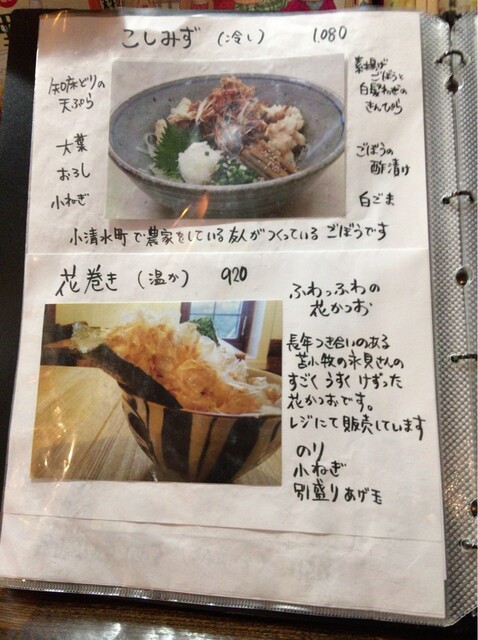 こしみず (冷し) 1,080
知床どりの
天ぷら
大葉
おろし
小ねぎ
素揚げ
ごぼうと
白髪ねぎの
きんぴら
ごぼうの
酢漬け
白ごま
小清水町で農家をしている友人がつくっている ごぼうです
花巻き (温か) 920
ふわっふわの
花かつお
長年つき合いのある
苫小牧の永見さんの
すごく うすく けずった
花かつおです。
レジにて販売しています
のり
小ねぎ
別盛りあげ玉